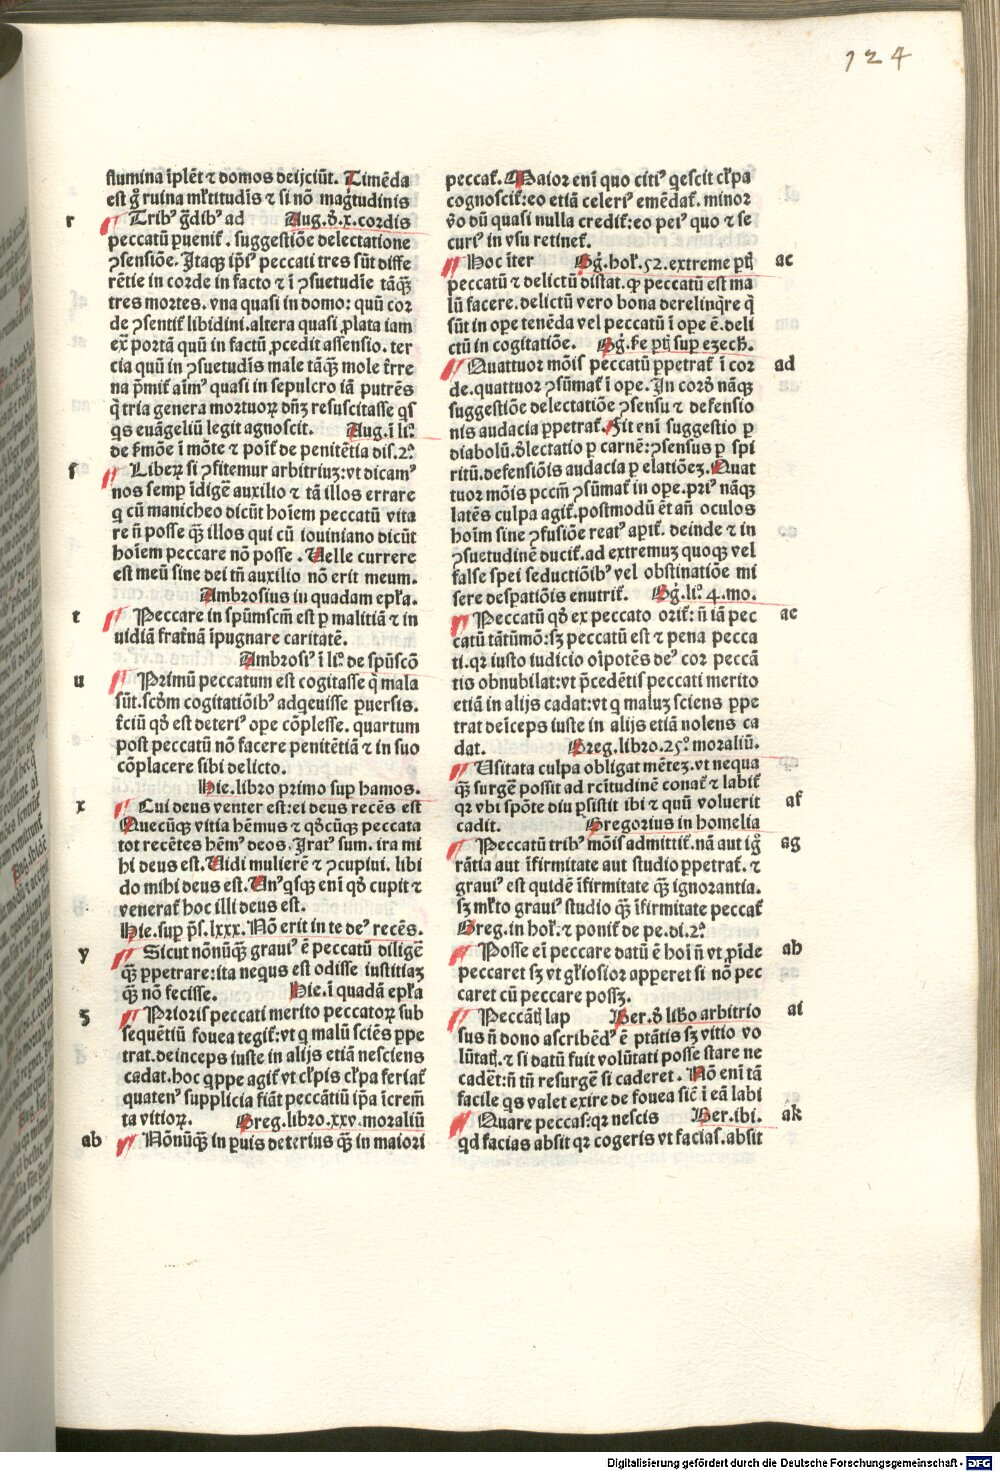 124
flumina īplēt ⁊ domos deijciūt. Timēda
est gͦ ruina mltitudīs ⁊ si nō magͥtudinis
r
Tribꝰ gͣdibꝰ ad Aug. ð. x. cordis
peccatū ꝑuenit̉. suggestiōe delectatione
ꝯsensiōe. Itaqꝫ ip̄iꝰ peccati tres sūt differe
rētie in corde in facto ⁊ ī ꝯsuetudīe tāqꝫ̄
tres mortes. vna quasi in domo: quū cor
de ꝯsentit̉ libidini. altera quasi ꝓlata iam
ex̄ portā quū in factū ꝓcedit assensio. ter
cia quū in ꝯsuetudīs male tāqꝫ̄ mole t̉re
na p̄mit̉ aīmꝰ quasi in sepulcro iā putrēs
qͥ tria genera mortuoꝝ dn̄ꝫ resuscitasse qͥs
qͥs euāgeliū legit agnoscit. Aug. ī liͦ.
de ẜmōe ī mōte ⁊ poīt̉ de penitētia dis. 2ͣ
ſ
Liberꝝ si ꝯfitemur arbitriuꝫ: vt dicamꝰ
nos semꝑ īdigē auxilio ⁊ tā illos errare
q cū manicheo dicūt hoīem peccatū vita
re n̄ posse qꝫ̄ illos qui cū iouiniano dicūt
hoīem peccare nō posse. Uelle currere
est meū sine dei tn̄ auxilio nō erit meum.
Ambrosius in quadam epl̄a.
t
Peccare in spūmscm̄ est ꝑ malitiā ⁊ in
uidiā frat̉nā īpugnare caritatē.
Ambrosiꝰ ī liͦ. de spūscō
u
Primū peccatum est cogitasse qͥ mala
sūt. scðm cogitatiōibꝰ adqeuisse ꝑuersis.
t̉ciū qð est deteriꝰ ope cōplesse. quartum
post peccatū nō facere penitētiā ⁊ in suo
cōplacere sibi delicto.
Hie. libro primo sup hamos.
x
Cui deus venter est: ei deus recēs est
Quecūqꝫ vitia hēmus ⁊ qðcūqꝫ peccata
tot recētes hēmꝰ deos. Iratꝰ sum. ira mi
hi deus est. Uidi mulierē ⁊ ꝯcupiui. libi
do mihi deus est. Unꝰqͥsqꝫ enī qð cupit ⁊
venerat̉ hoc illi deus est.
Hie. sup pͣs. lxxx. Nō erit in te deꝰ recēs.
y
Sicut nōnūqꝫ̄ grauiꝰ ē peccatū diligē
qꝫ̄ ꝑpetrare: ita nequs est odisse iustitiaꝫ
qꝫ̄ nō fecisse. Hie. ī quadā epl̄a
ꝫ
Prioris peccati merito peccatoꝝ sub
sequētiū fouea tegit̉: vt q malū sciēs ꝑpe
trat. deinceps iuste in alijs etiā nesciens
cadat. hoc qͥppe agit̉ vt cl̄pis cl̄pa feriat̉
quatenꝰ supplicia fiāt peccātiū ip̄a īcrem̄
ta vitioꝝ. Greg. libro. xxv. moraliū
ab
Nōnūqꝫ̄ in ꝑuis deterius qꝫ̄ in maiori
peccat̉. Maior enī quo citiꝰ qͥescit cl̄pa
cognoscit̉: eo etiā celeriꝰ emēdat̉. minor
v̊o dū quasi nulla credit̉: eo peiꝰ quo ⁊ se
curiꝰ in vsu retinet̉.
ac
Hoc īter Gͥg. hol̉. 52. extreme ꝑtͥ
peccatū ⁊ delictū distat. qꝛ peccatū est ma
lū facere. delictū vero bona derelinqͥre qͥ
sūt in oꝑe tenēda vel peccatū ī oꝑe ē. deli
ctū in cogitatiōe. Gͥg. ẜe ꝑtͥ sup ezech̄.
ad
Quattuor mōis peccatū ꝑpetrat̉ ī cor
de. quattuor ꝯsūmat̉ ī oꝑe. In corð nāqꝫ
suggestiōe delectatiōe ꝯsensu ⁊ defensio
nis audacia ꝑpetrat̉. Fit enī suggestio ꝑ
diabolū. ðlectatio ꝑ carnē: ꝯsensus ꝑ spi
ritū. defensiōis audacia ꝑ elatiōeꝫ. Quat
tuor mōis pccm̄ ꝯsūmat̉ in oꝑe. priꝰ nāqꝫ
latēs culpa agit̉. postmodū ēt an̄ oculos
hoīm sine ꝯfusiōe reatꝰ aꝑit̉. deinde ⁊ in
ꝯsuetudinē ducit̉. ad extremuꝫ quoqꝫ vel
false spei seductiōibꝰ vel obstinatiōe mi
sere despatiōis enutrit̉. Gͥg. liͦ. 4. mo.
ae
Peccatū qð ex peccato orit̉: n̄ iā pec
catū tātūmō: sꝫ peccatū est ⁊ pena pecca
ti. qꝛ iusto iudicio oīpotēs deꝰ cor peccā
tis obnubilat: vt p̄cedētis peccati merito
etiā in alijs cadat: vt q maluꝫ sciens ꝑpe
trat deīceps iuste in alijs etiā nolens ca
dat. Greg. libro. 25ͦ. moraliū.
Usitata culpa obligat mēteꝫ. vt nequa
qꝫ̄ surgē possit ad rc̄itudinē conat̉ ⁊ labit̉
af
qꝛ vbi spōte diu ꝑsistit ibi ⁊ quū voluerit
cadit. Gregorius in homelia
ag
Peccatū tribꝰ mōis admittit̉. nā aut igͦ
rātia aut īfirmitate aut studio ꝑpetrat̉. ⁊
grauiꝰ est quidē īfirmitate qꝫ̄ ignorantia.
sꝫ ml̄to grauiꝰ studio qꝫ̄ īfirmitate peccat̉
Greg. in hol̉. ⁊ ponit̉ de pe. di. 2ͣ.
ab
Posse eī peccare datū ē hoī n̄ vt ꝓīde
peccaret sꝫ vt gl̄iosior apperet si nō pec
caret cū peccare possꝫ.
ai
Peccātͥ lap Ber. ð libo arbitrio
sus n̄ dono ascribēdꝰ ē ptātis sꝫ vitio vo
lūtatͥ. ⁊ si datū fuit volūtati posse stare ne
cadēt: n̄ tn̄ resurgē si caderet. Nō enī tā
facile qͥs valet exire de fouea sic̄ ī eā labi
ak
Quare peccas: qꝛ nescis Ber. ibi.
qd facias absit qꝛ cogeris vt facias. absit
Digitalisierung gefördert durch die Deutsche Forschungsgemeinschaft - DFG